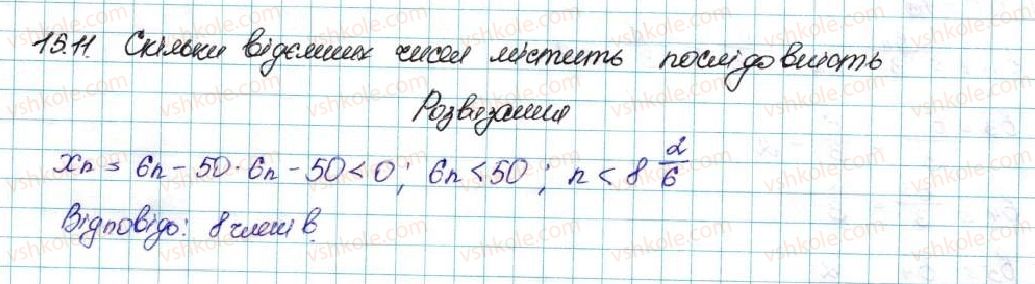 15.11. Скільки відємних чисел містить послідовність
Розвязання
xn = 6n - 50. 6n - 50 < 0; 6n < 50; n < 8 2/6
Відповідь: 8 членів.